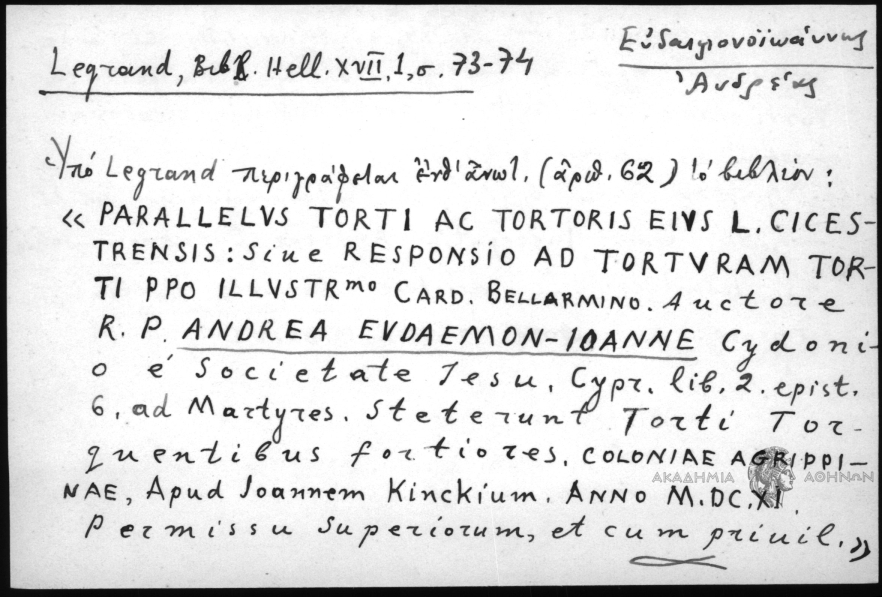 Legrand, Bibl. Hell. XVII, 1, σ. 73-74
Εὐδαιμονοϊωάννης
Ἀνδρέας
Ὑπό Legrand περιγράφεται ἐνθ' ἀνωτ. (ἀριθ. 62) τό βιβλίον:
« PARALLELVS TORTI AC TORTORIS EIVS L. CICES-
TRENSIS: Siue RESPONSIO AD TORTVRAM TOR-
TI PPO ILLVSTRmo CARD. BELLARMINO. Auctore
R. P. ANDREA EVDAEMON-IOANNE Cydoni-
o é Societate Iesu, Cypr. lib. 2. epist.
6, ad Martyres. Steterunt Torti Tor-
quentibus fortiores, COLONIAE AGRIPPI-
NAE, Apud Ioannem Kinckium. ANNO M.DC.XI.
Permissu Superiorum, et cum priuil. »
ΑΚΑΔΗΜΙΑ ΑΘΗΝΩΝ